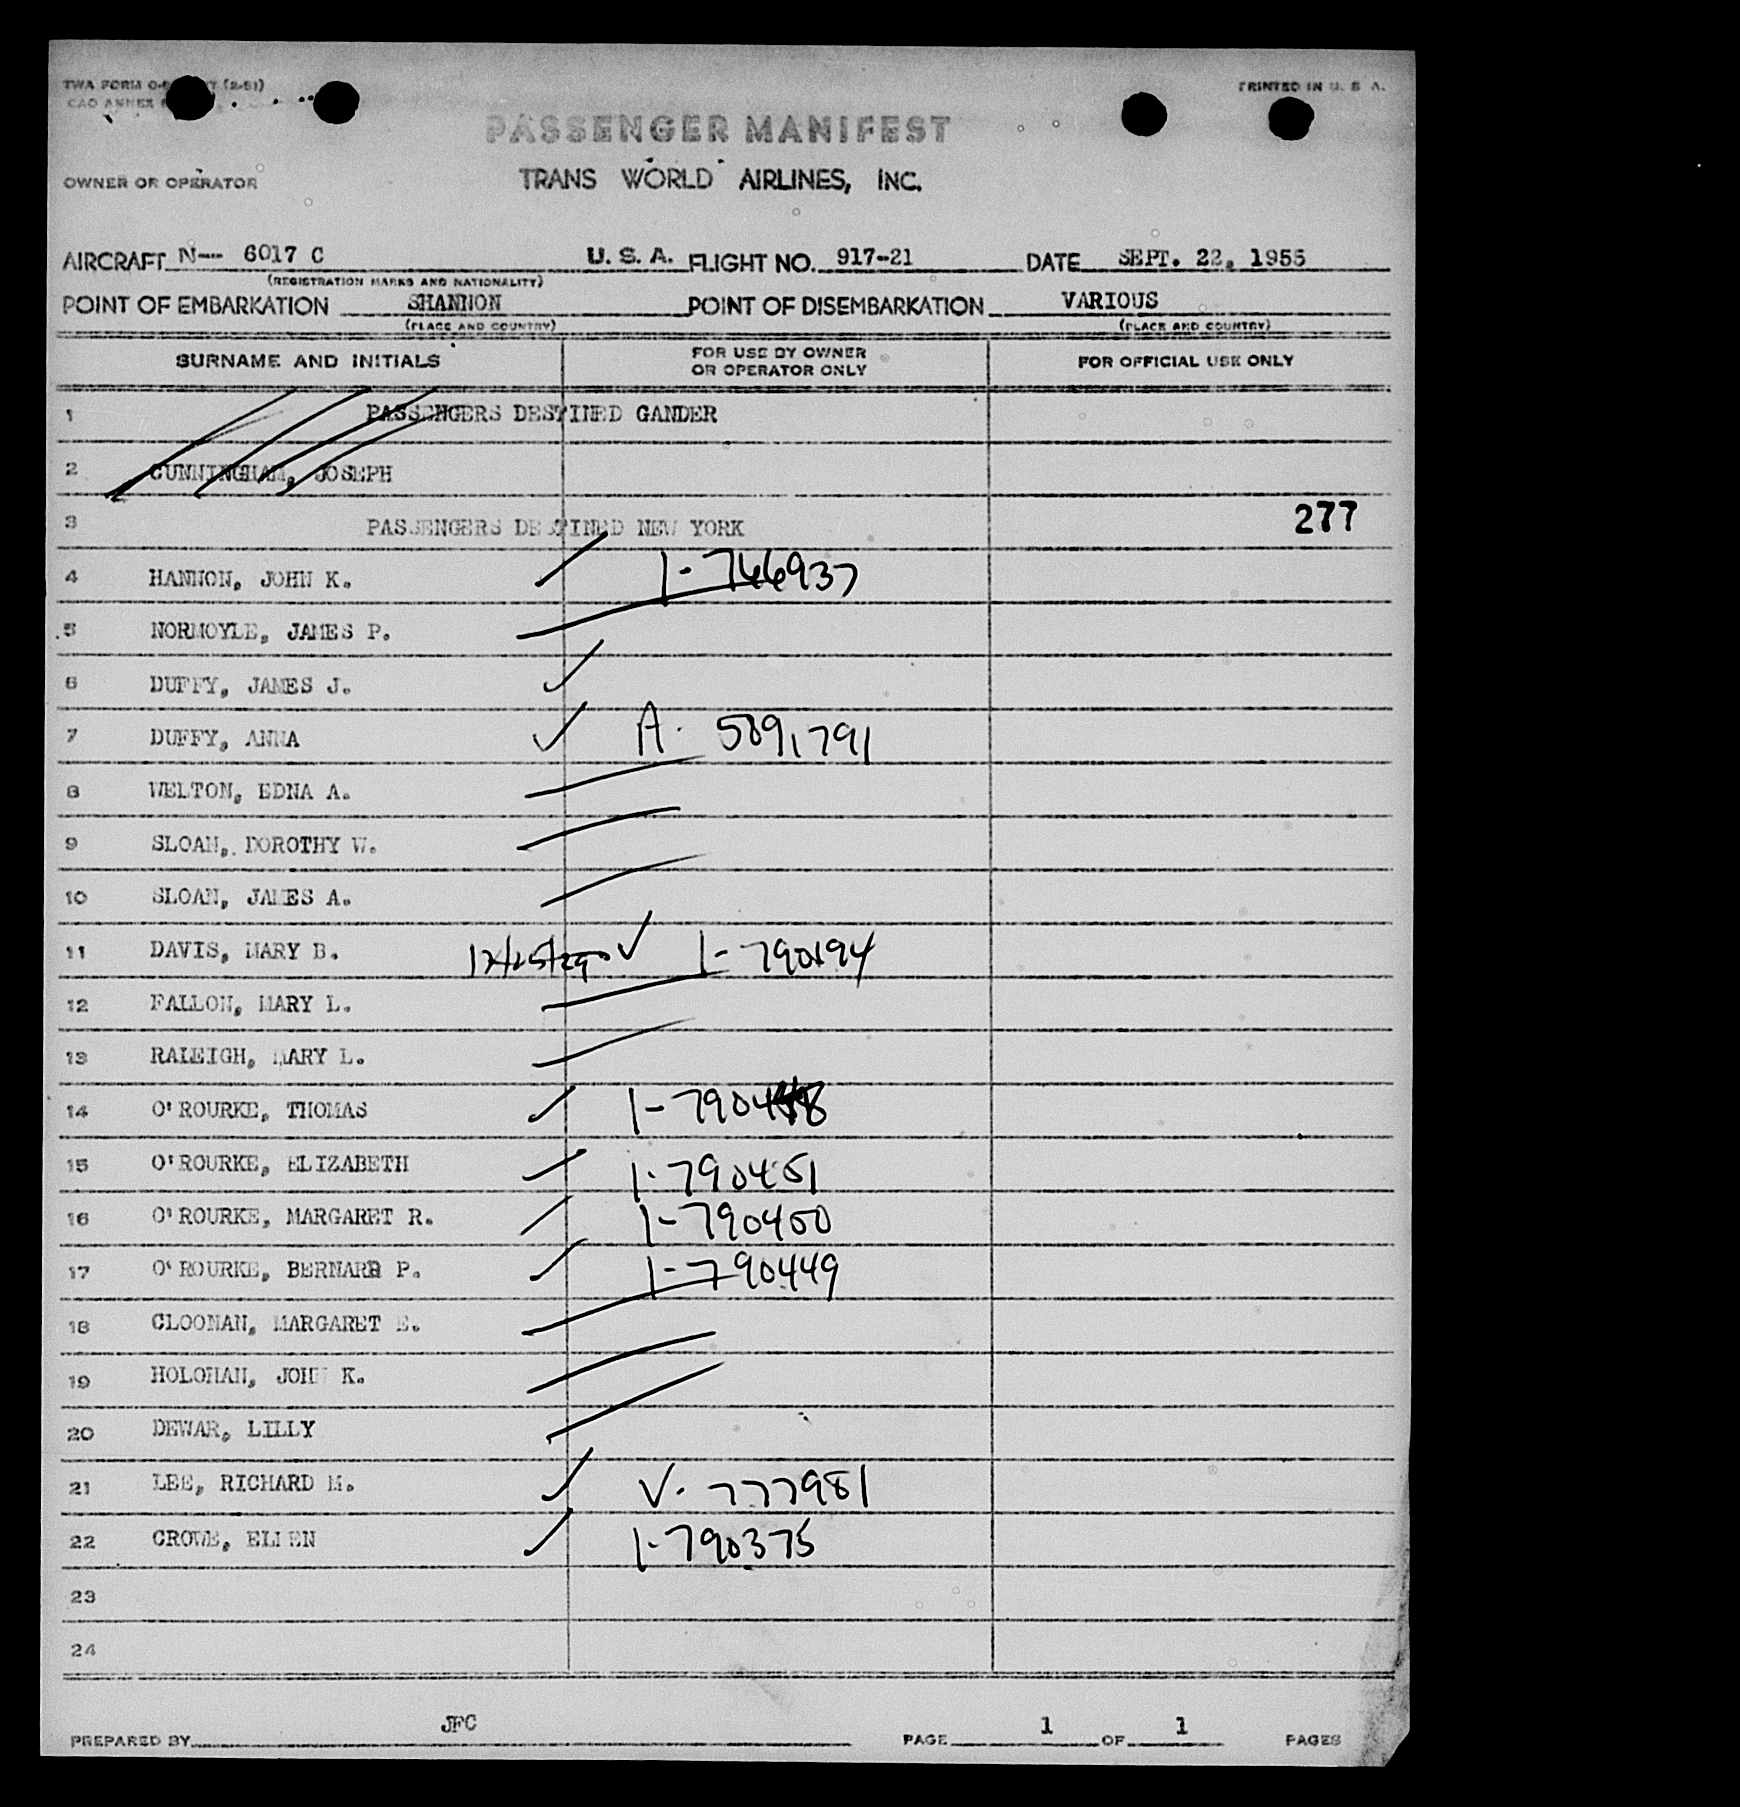 TWA FORM O- (2-51)
PRINTED IN U. S. A.
CAO ANNEX
PASSENGER MANIFEST
OWNER OR OPERATOR TRANS WORLD AIRLINES, INC.
AIRCRAFT N-- 6017 C U. S. A. FLIGHT NO. 917-21 DATE SEPT. 22, 1955
(REGISTRATION MARKS AND NATIONALITY)
POINT OF EMBARKATION SHANNON POINT OF DISEMBARKATION VARIOUS
(PLACE AND COUNTRY) (PLACE AND COUNTRY)
SURNAME AND INITIALS FOR USE BY OWNER OR OPERATOR ONLY FOR OFFICIAL USE ONLY
1 PASSENGERS DESTINED GANDER
2 CUNNINGHAM, JOSEPH
3 PASSENGERS DESTINED NEW YORK 277
4 HANNON, JOHN K. 1-766937
5 NORMOYLE, JAMES P.
6 DUFFY, JAMES J.
7 DUFFY, ANNA A. 5891791
8 WELTON, EDNA A.
9 SLOAN, DOROTHY W.
10 SLOAN, JAMES A.
11 DAVIS, MARY B. 1-790194
12 FALLON, MARY L.
13 RALEIGH, MARY L.
14 O'ROURKE, THOMAS
15 O'ROURKE, ELIZABETH 1-790451
16 O'ROURKE, MARGARET R. 1-790450
17 O'ROURKE, BERNARD P. 1-790449
18 CLOONAN, MARGARET E.
19 HOLOHAN, JOHN K.
20 DEWAR, LILLY
21 LEE, RICHARD M. V. 777981
22 CROWE, ELLEN 1-790375
23
24
PREPARED BY JFC PAGE 1 OF 1 PAGES